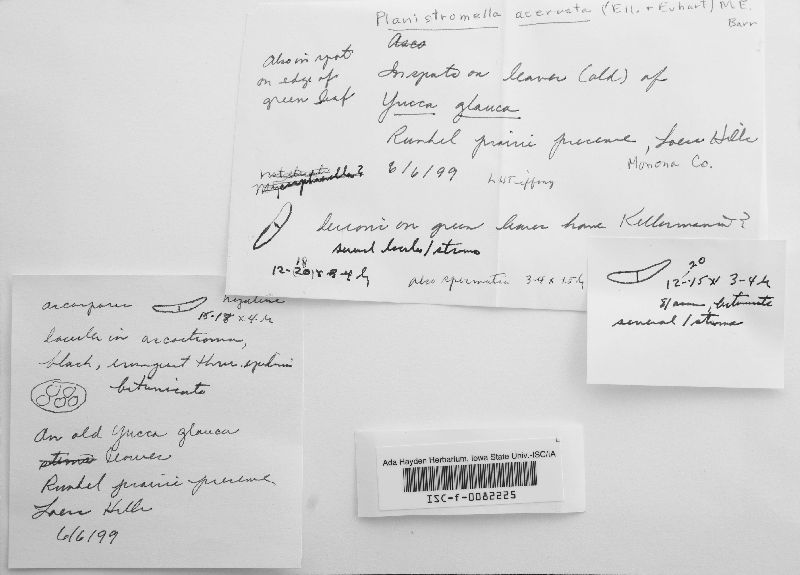 Planistromella acervata (Ell. + Everhart) M.E.
Barr
Asco
Also in spot
on edge of
green leaf
In spots on leaves (old) of
Yucca glauca
Runkel prairie preserve, Loess Hills
Monona Co.
6/6/99
LH Tiffany
Mycosphaerella?
lesions on green leaves have Kellermania?
several locules/stroma
18
12-(20) x 3-4 µ
also spermatia 3-4 x 1.5 µ
20
12-15 x 3-4 µ
8/ascus, bitunicate
several/stroma
ascospores hyaline
15-18 x 4 µ
locules in ascostroma,
black, erumpent thru epidermis
bitunicate
On old Yucca glauca
stems leaves
Runkel prairie preserve
Loess Hills
6/6/99
Ada Hayden Herbarium, Iowa State Univ.-ISC/IA
ISC-f-0082225